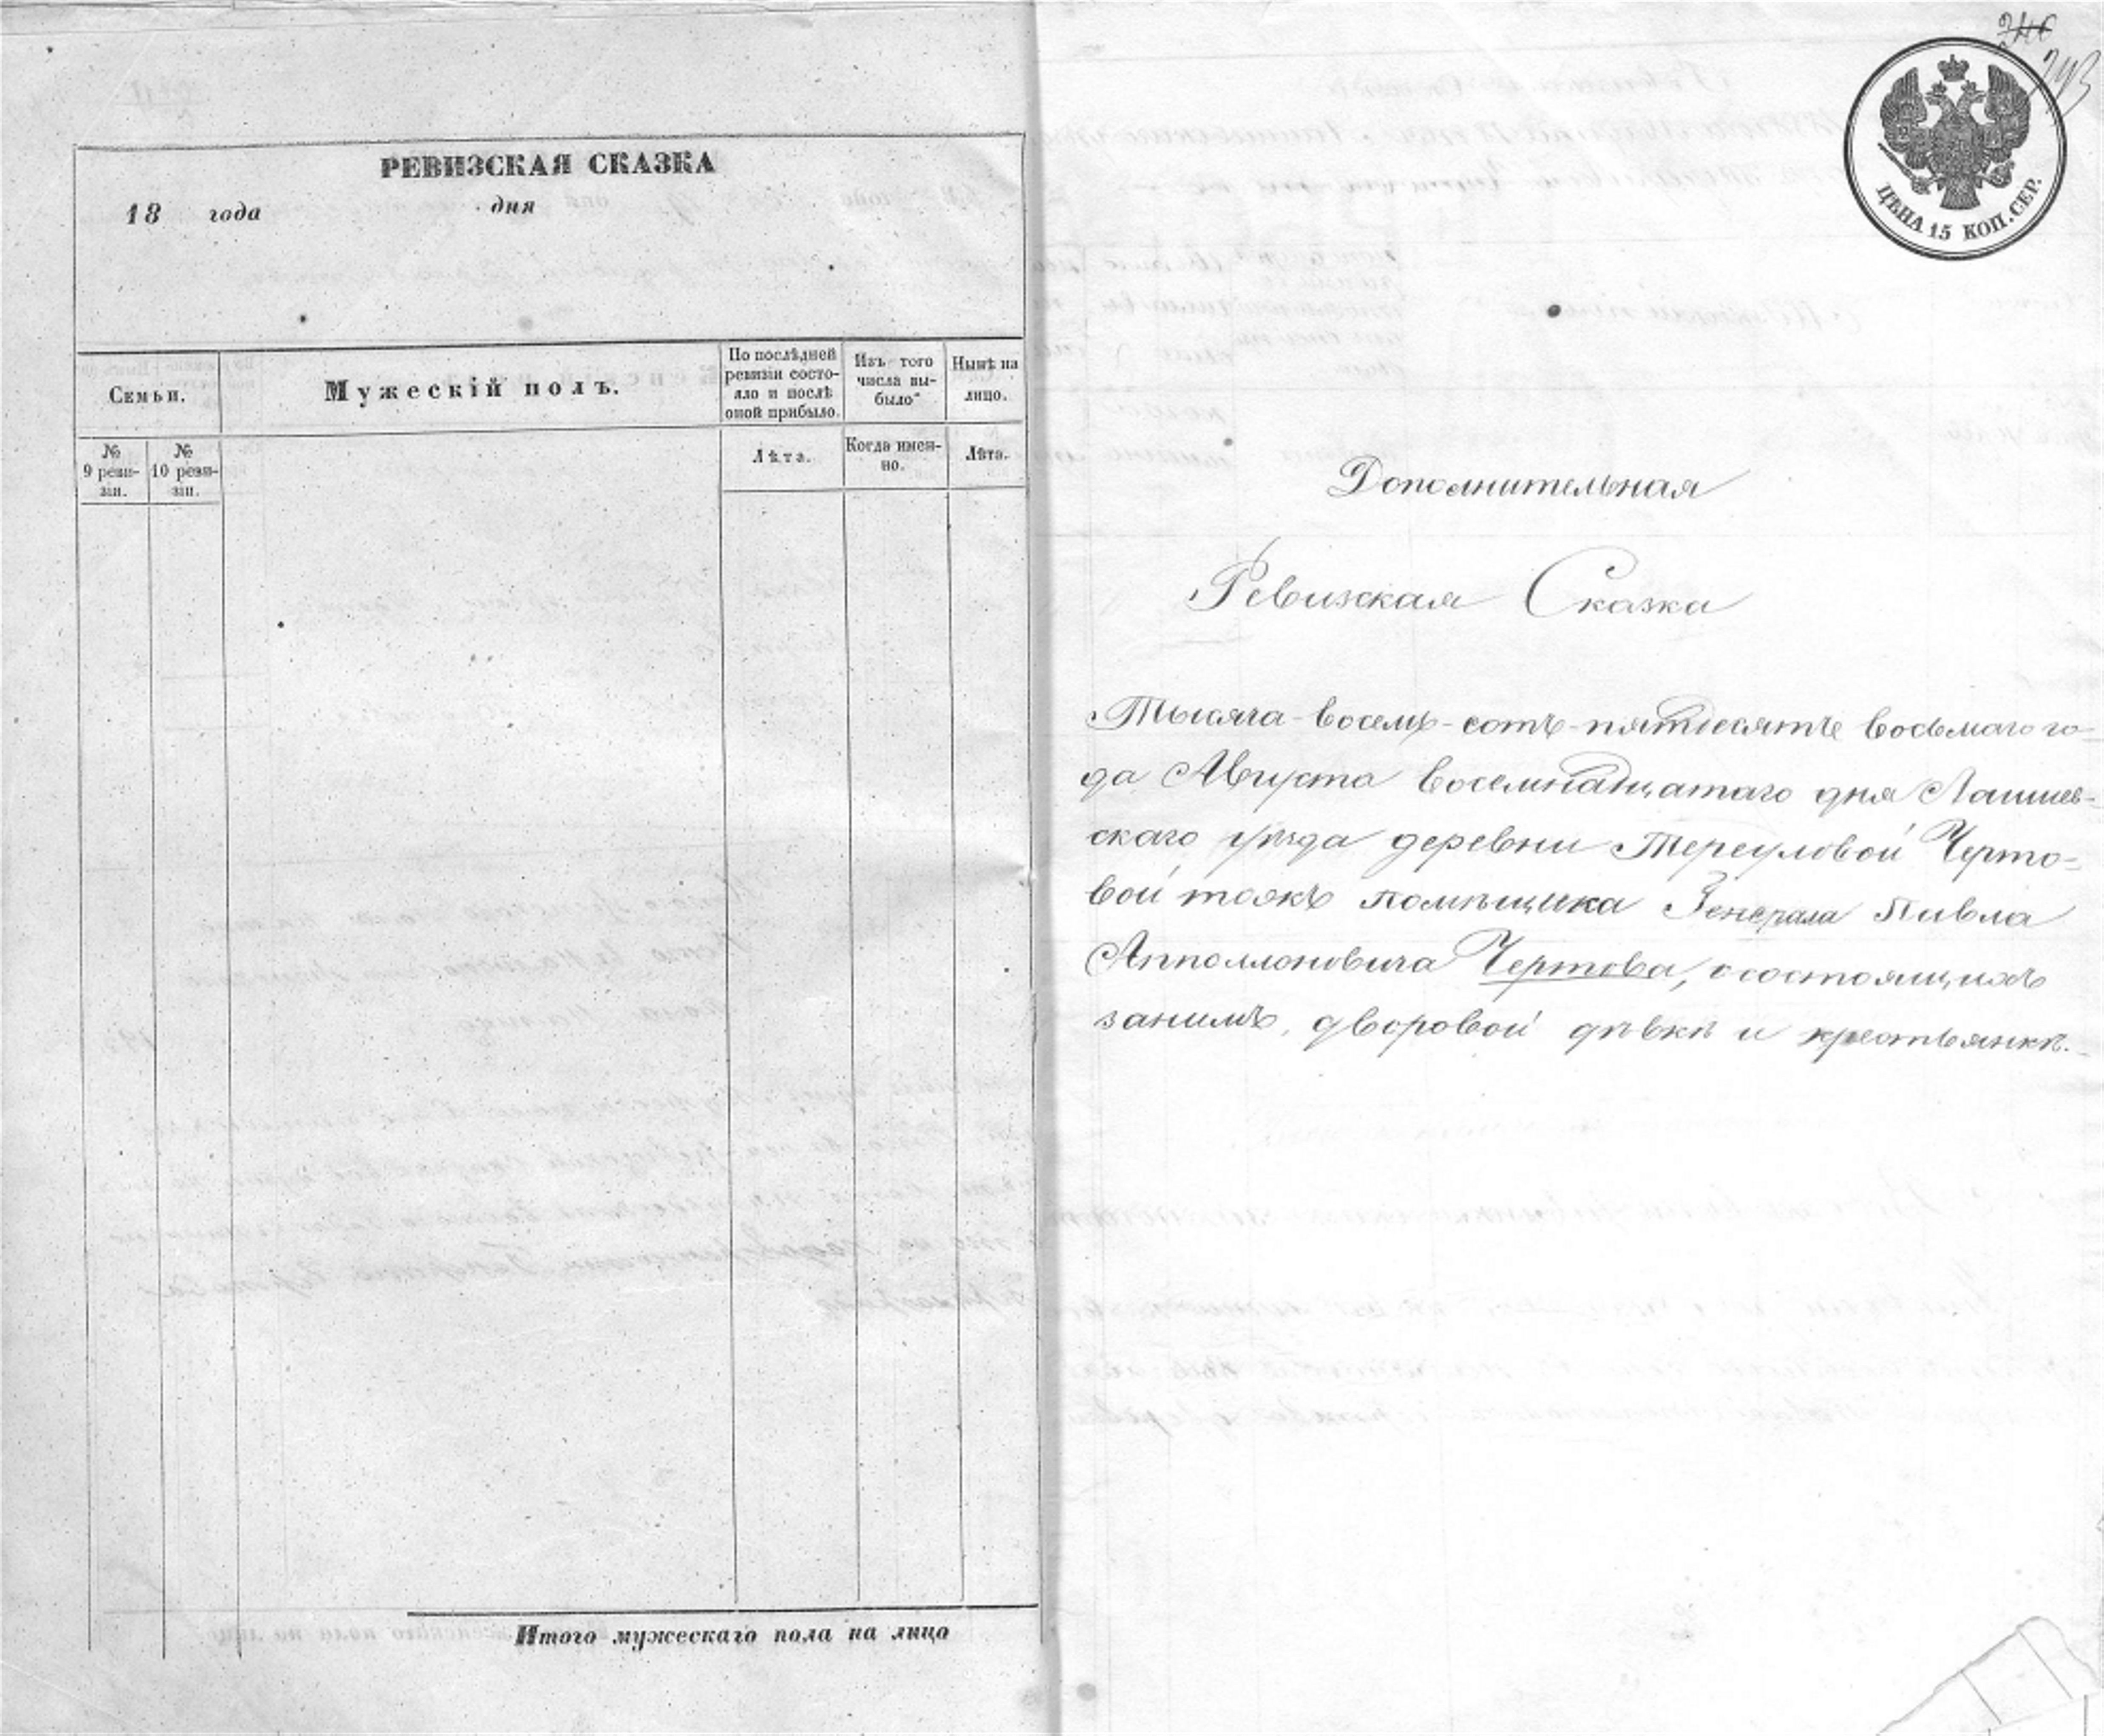 РЕВИЗСКАЯ СКАЗКА
18 года дня
Семьи.
Мужескій полъ.
По послѣдней
ревизіи состо-
яло и послѣ
оной прибыло.
Изъ того
числа вы-
было
Нынѣ на
лицо.
№
9 реви-
зіи.
№
10 реви-
зіи.
Лѣта.
Когда имен-
но.
Лѣта.
Итого мужескаго пола на лицо
246
243
ЦѢНА 15 КОП. СЕР.
Дополнительная
Ревизская Сказка
Тысяча-восемь-сотъ-пятдесятъ восьмаго го-
да Августа восемнадцатаго дня Лаишев-
скаго уѣзда деревни Тереуловой Черто-
вой тожъ помѣщика Генерала Павла
Апполлоновича Чертова, о состоящихъ
занимъ, дворовой дѣвкѣ и крестьянкѣ.